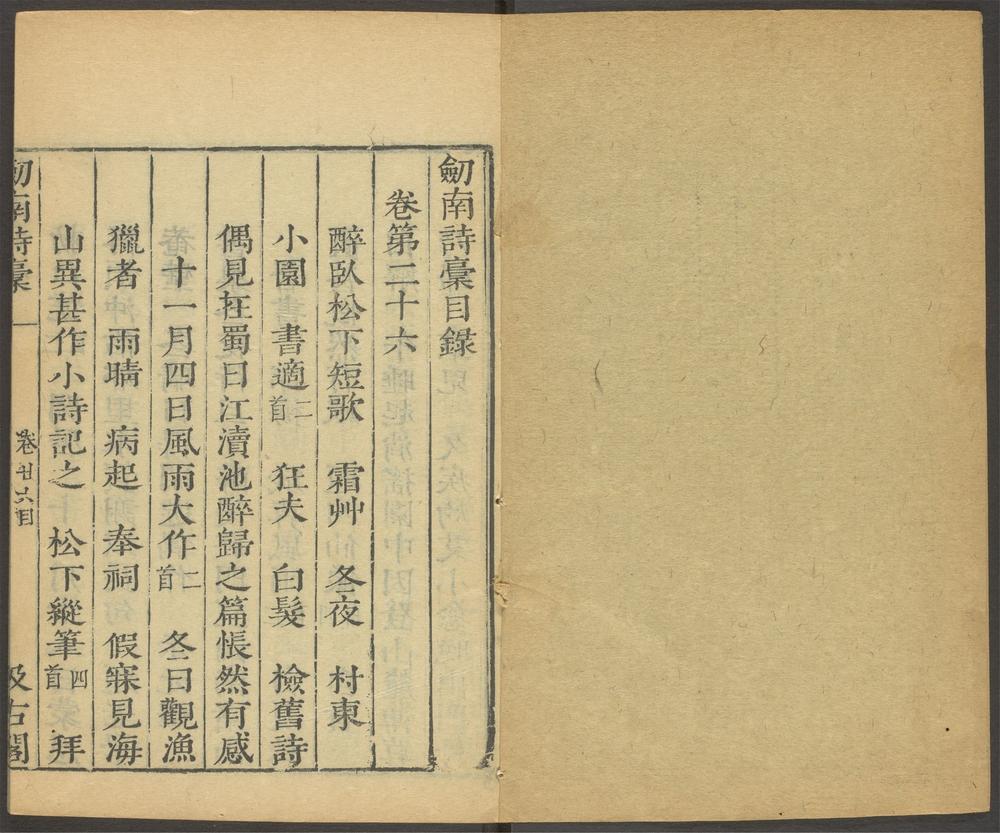 劒南詩稾目錄
卷第二十六
醉臥松下短歌　霜艸　冬夜　村東
小園　書適二首　狂夫　白髮　檢舊詩
偶見在蜀日江瀆池醉歸之篇悵然有感
十一月四日風雨大作二首　冬日觀漁
獵者　雨晴　病起　奉祠　假寐見海
山異甚作小詩記之　松下縱筆四首　拜
劒南詩稾　一　卷廿六目　汲古閣